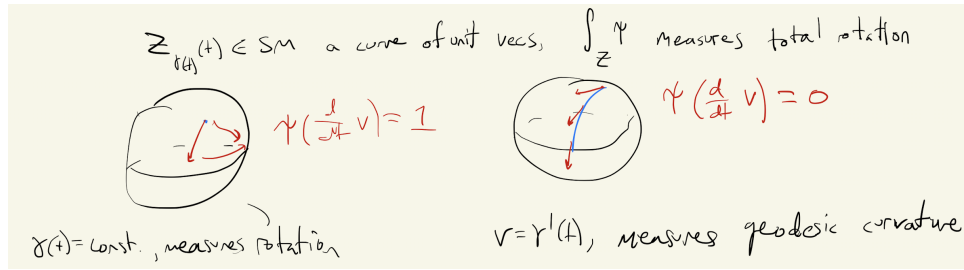 Z_γ(t)(t) ∈ SM a curve of unit vecs, ∫_Z ψ measures total rotation
ψ(d/dt v) = 1
ψ(d/dt v) = 0
γ(t) = const., measures rotation
v = γ'(t), measures geodesic curvature